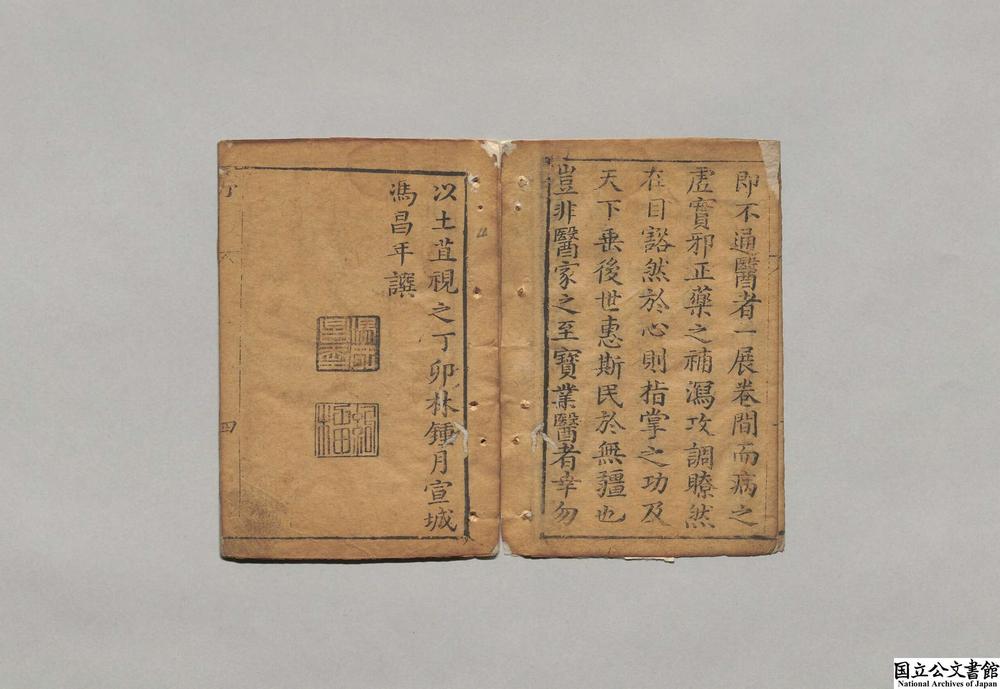 即不通醫者一展卷間而病之
虛實邪正藥之補瀉攻調瞭然
在目豁然於心則指掌之功及
天下垂後世惠斯民於無疆也
豈非醫家之至寶業醫者幸勿
以土苴視之丁卯林鍾月宣城
馮昌年譔
四
国立公文書館
National Archives of Japan